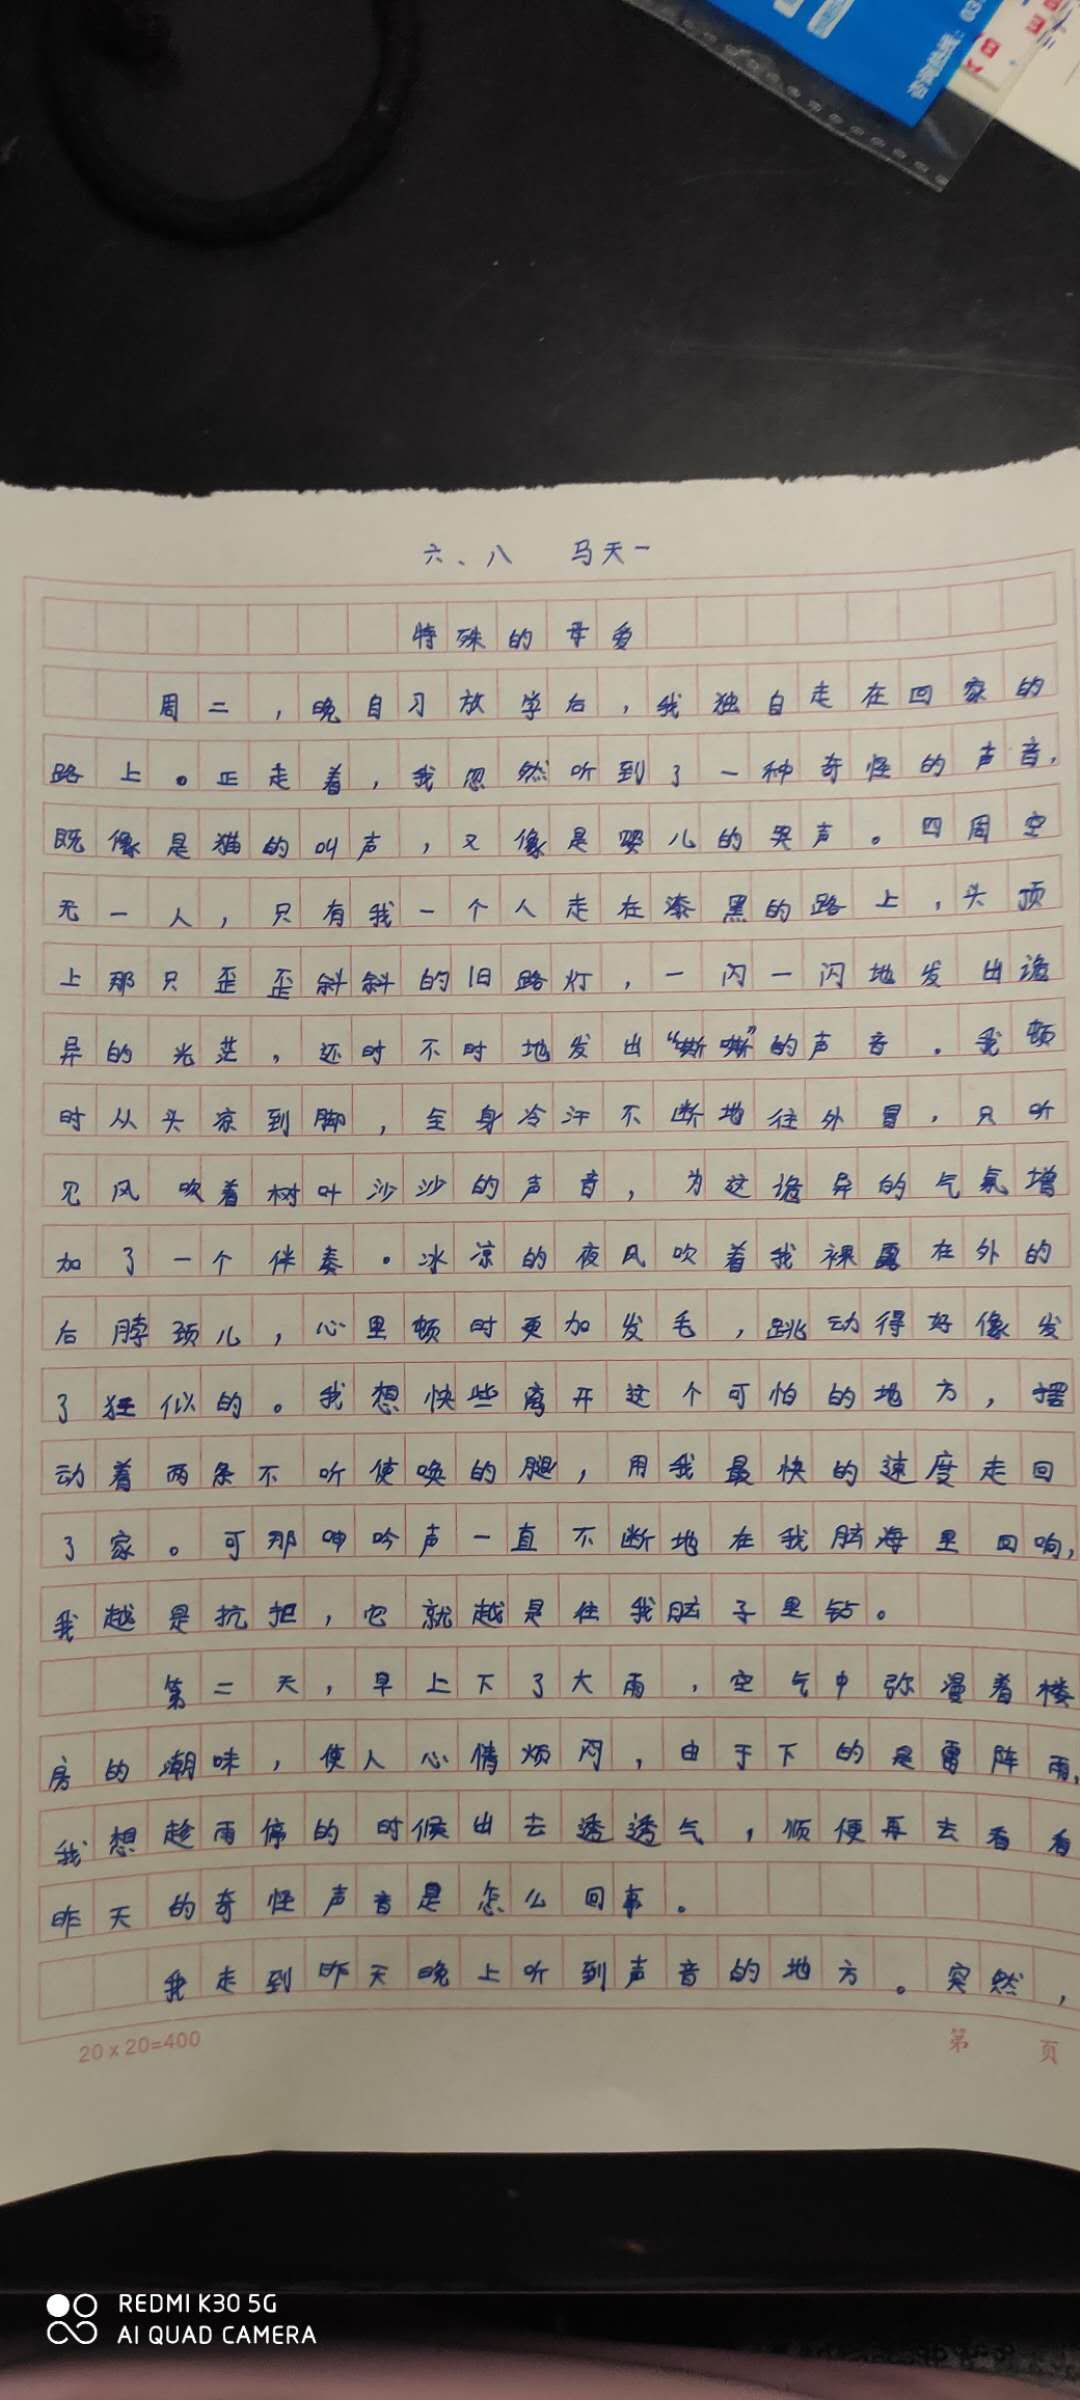 六、八 马天一
特殊的母爱
周二，晚自习放学后，我独自走在回家的
路上。正走着，我忽然听到了一种奇怪的声音，
既像是猫的叫声，又像是婴儿的哭声。四周空
无一人，只有我一个人走在漆黑的路上，头顶
上那只歪歪斜斜的旧路灯，一闪一闪地发出诡
异的光茫，还时不时地发出“嘶嘶”的声音。我顿
时从头凉到脚，全身冷汗不断地往外冒，只听
见风吹着树叶沙沙的声音，为这诡异的气氛增
加了一个伴奏。冰凉的夜风吹着我裸露在外的
后脖颈儿，心里顿时更加发毛，跳动得好像发
了狂似的。我想快些离开这个可怕的地方，摆
动着两条不听使唤的腿，用我最快的速度走回
了家。可那呻吟声一直不断地在我脑海里回响，
我越是抗拒，它就越是往我脑子里钻。
第二天，早上下了大雨，空气中弥漫着楼
房的潮味，使人心情烦闷，由于下的是雷阵雨，
我想趁雨停的时候出去透透气，顺便再去看看
昨天的奇怪声音是怎么回事。
我走到昨天晚上听到声音的地方。突然，
20×20=400
第 页
REDMI K30 5G
AI QUAD CAMERA